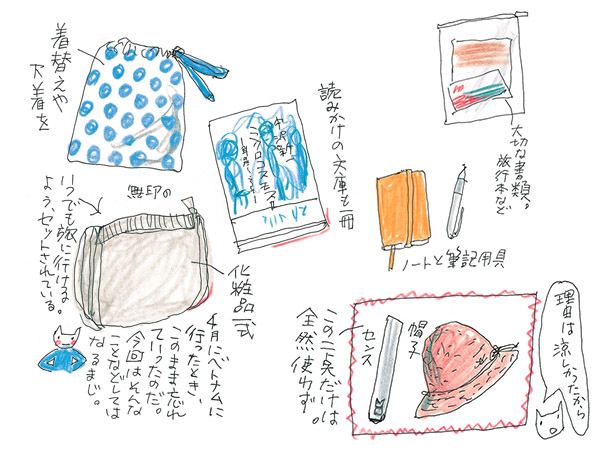 着替えや
下着を
読みかけの文庫も一冊
中沢新一
ミクロコスモスⅡ
大切な書類。
旅行本など
ノートと筆記用具
無印の
化粧品一式
いつでも旅に行けるよ
よう、セットされている。
4月にベトナムに
行ったとき、
このまま忘れ
ていったのだ。
今回はそんな
ことなどしては
なるまじ。
この二点だけは
全然使わず。
センス
帽子
理由は涼しかったから